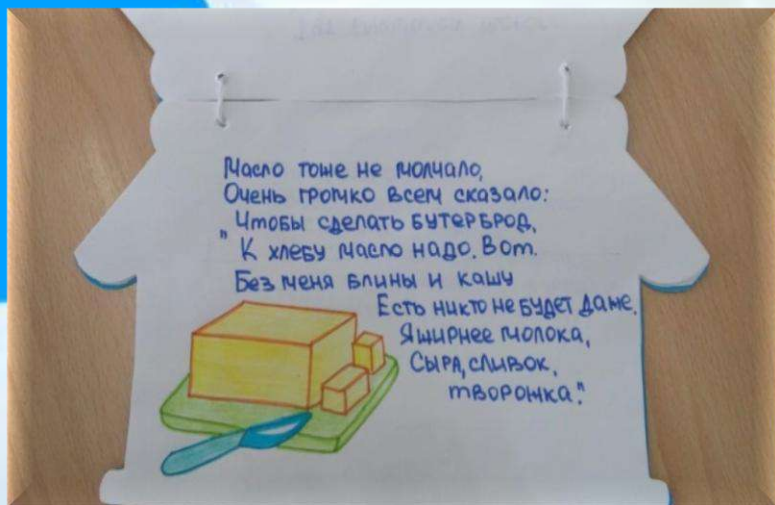 Масло тоже не молчало,
Очень громко всем сказало:
Чтобы сделать бутерброд,
" К хлебу масло надо. Вот.
Без меня блины и кашу
Есть никто не будет даже.
Я жирнее молока,
Сыра, сливок,
творожка."